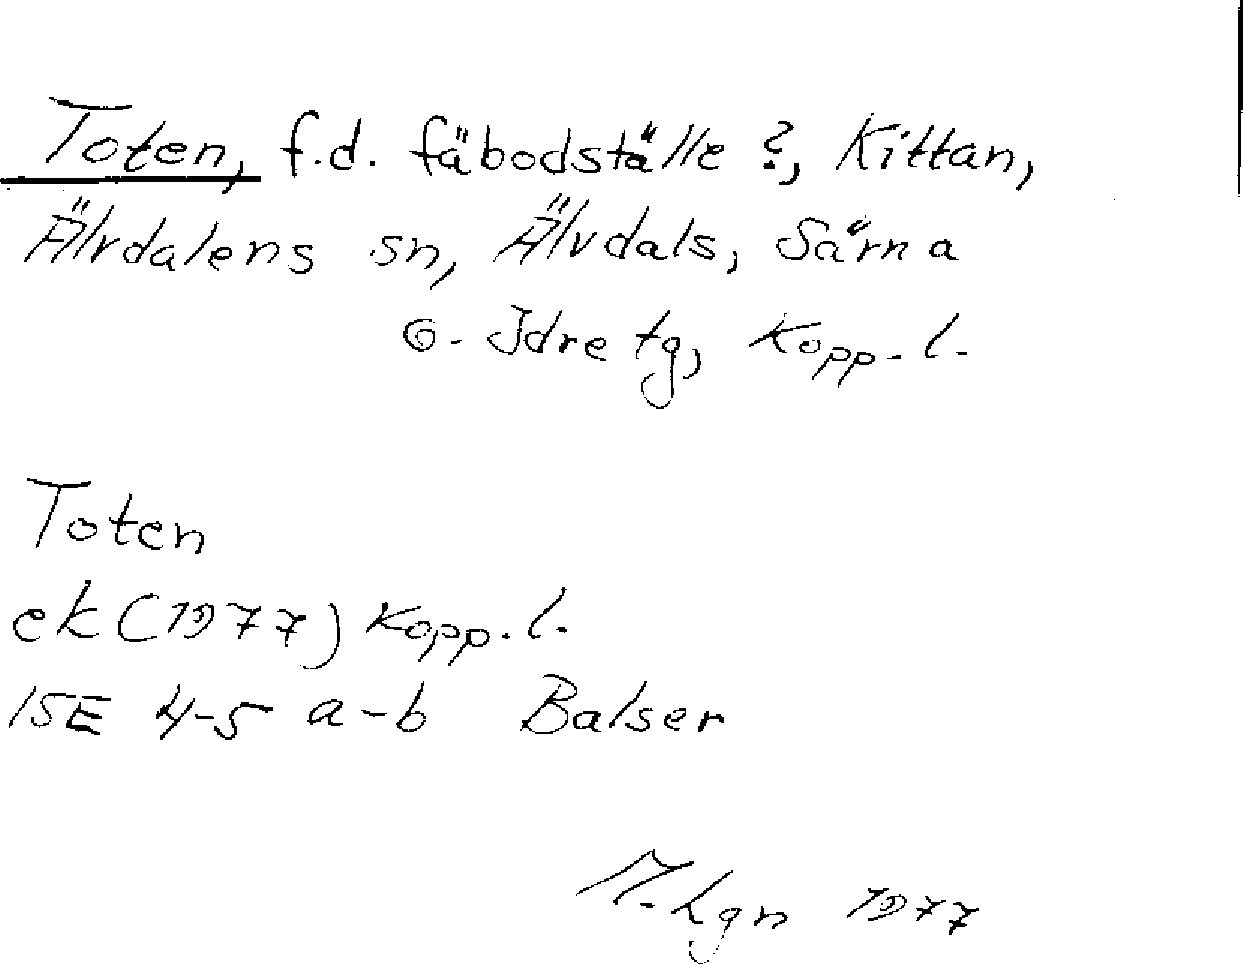 Toten, f.d. fäbodställe ?, Kittan,
Älvdalens sn, Älvdals, Särna
o. Idre tg, Kopp. l.
Toten
ek (1977) Kopp. l.
15E 4-5 a-b Balser
M. Lgn 1977